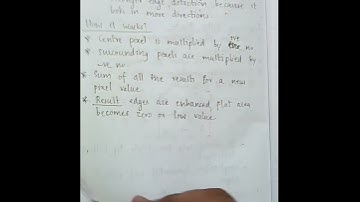 stronger edge detection because it
look in more directions
How it works?
* Centre pixel is multiplied by +ve no
* Surrounding pixels are multiplied by
-ve no.
* Sum of all the results for a new
pixel value.
* Result edges are enhanced, flat area
becomes zero or low value.